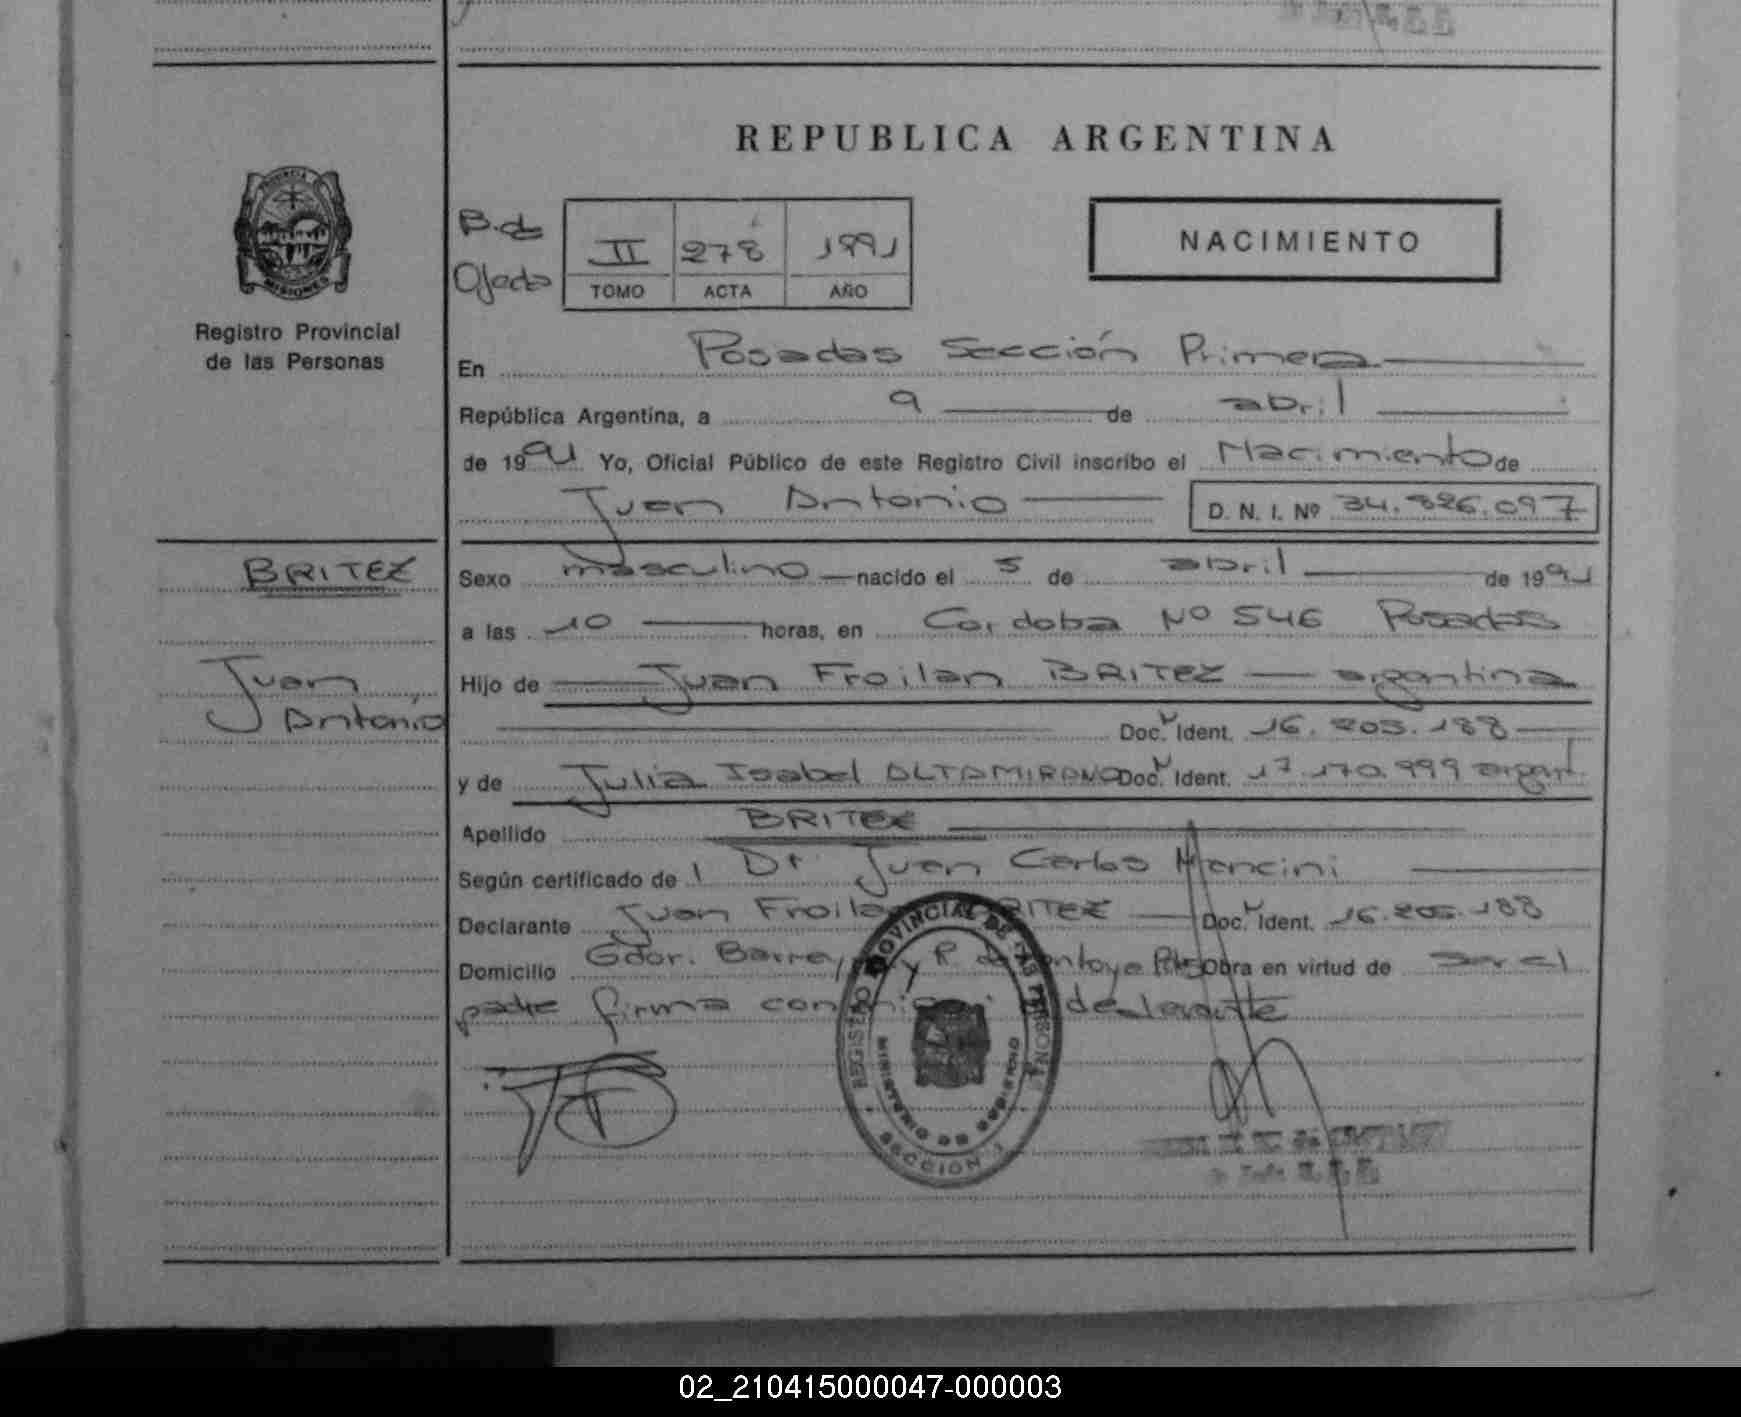 REPUBLICA ARGENTINA
PROVINCIA
MISIONES
Registro Provincial
de las Personas
B. de
II 278 1991
TOMO ACTA AÑO
NACIMIENTO
En Posadas Sección Primera
República Argentina, a 9 de abril
de 1991 Yo, Oficial Público de este Registro Civil inscribo el Nacimiento de
Juan Antonio D. N. I. Nº 34.826.097
BRITEZ
Juan
Antonio
Sexo masculino nacido el 5 de abril de 1991
a las 10 horas, en Cordoba Nº 546 Posadas
Hijo de Juan Froilan BRITEZ argentina
Doc. Ident. 16.205.188
y de Julia Isabel ALTAMIRANO Doc. Ident. 17.170.999 argent.
Apellido BRITEZ
Según certificado de l Dr Juan Carlos Mancini
Declarante Juan Froilan BRITEZ Doc. Ident. 16.205.188
Domicilio Gdor. Barreyro y R de Montoya Pdas Obra en virtud de ser el
padre firma conmigo
REGISTRO PROVINCIAL DE LAS PERSONAS
MINISTERIO DE GOBIERNO
SECCION 1
02_210415000047-000003